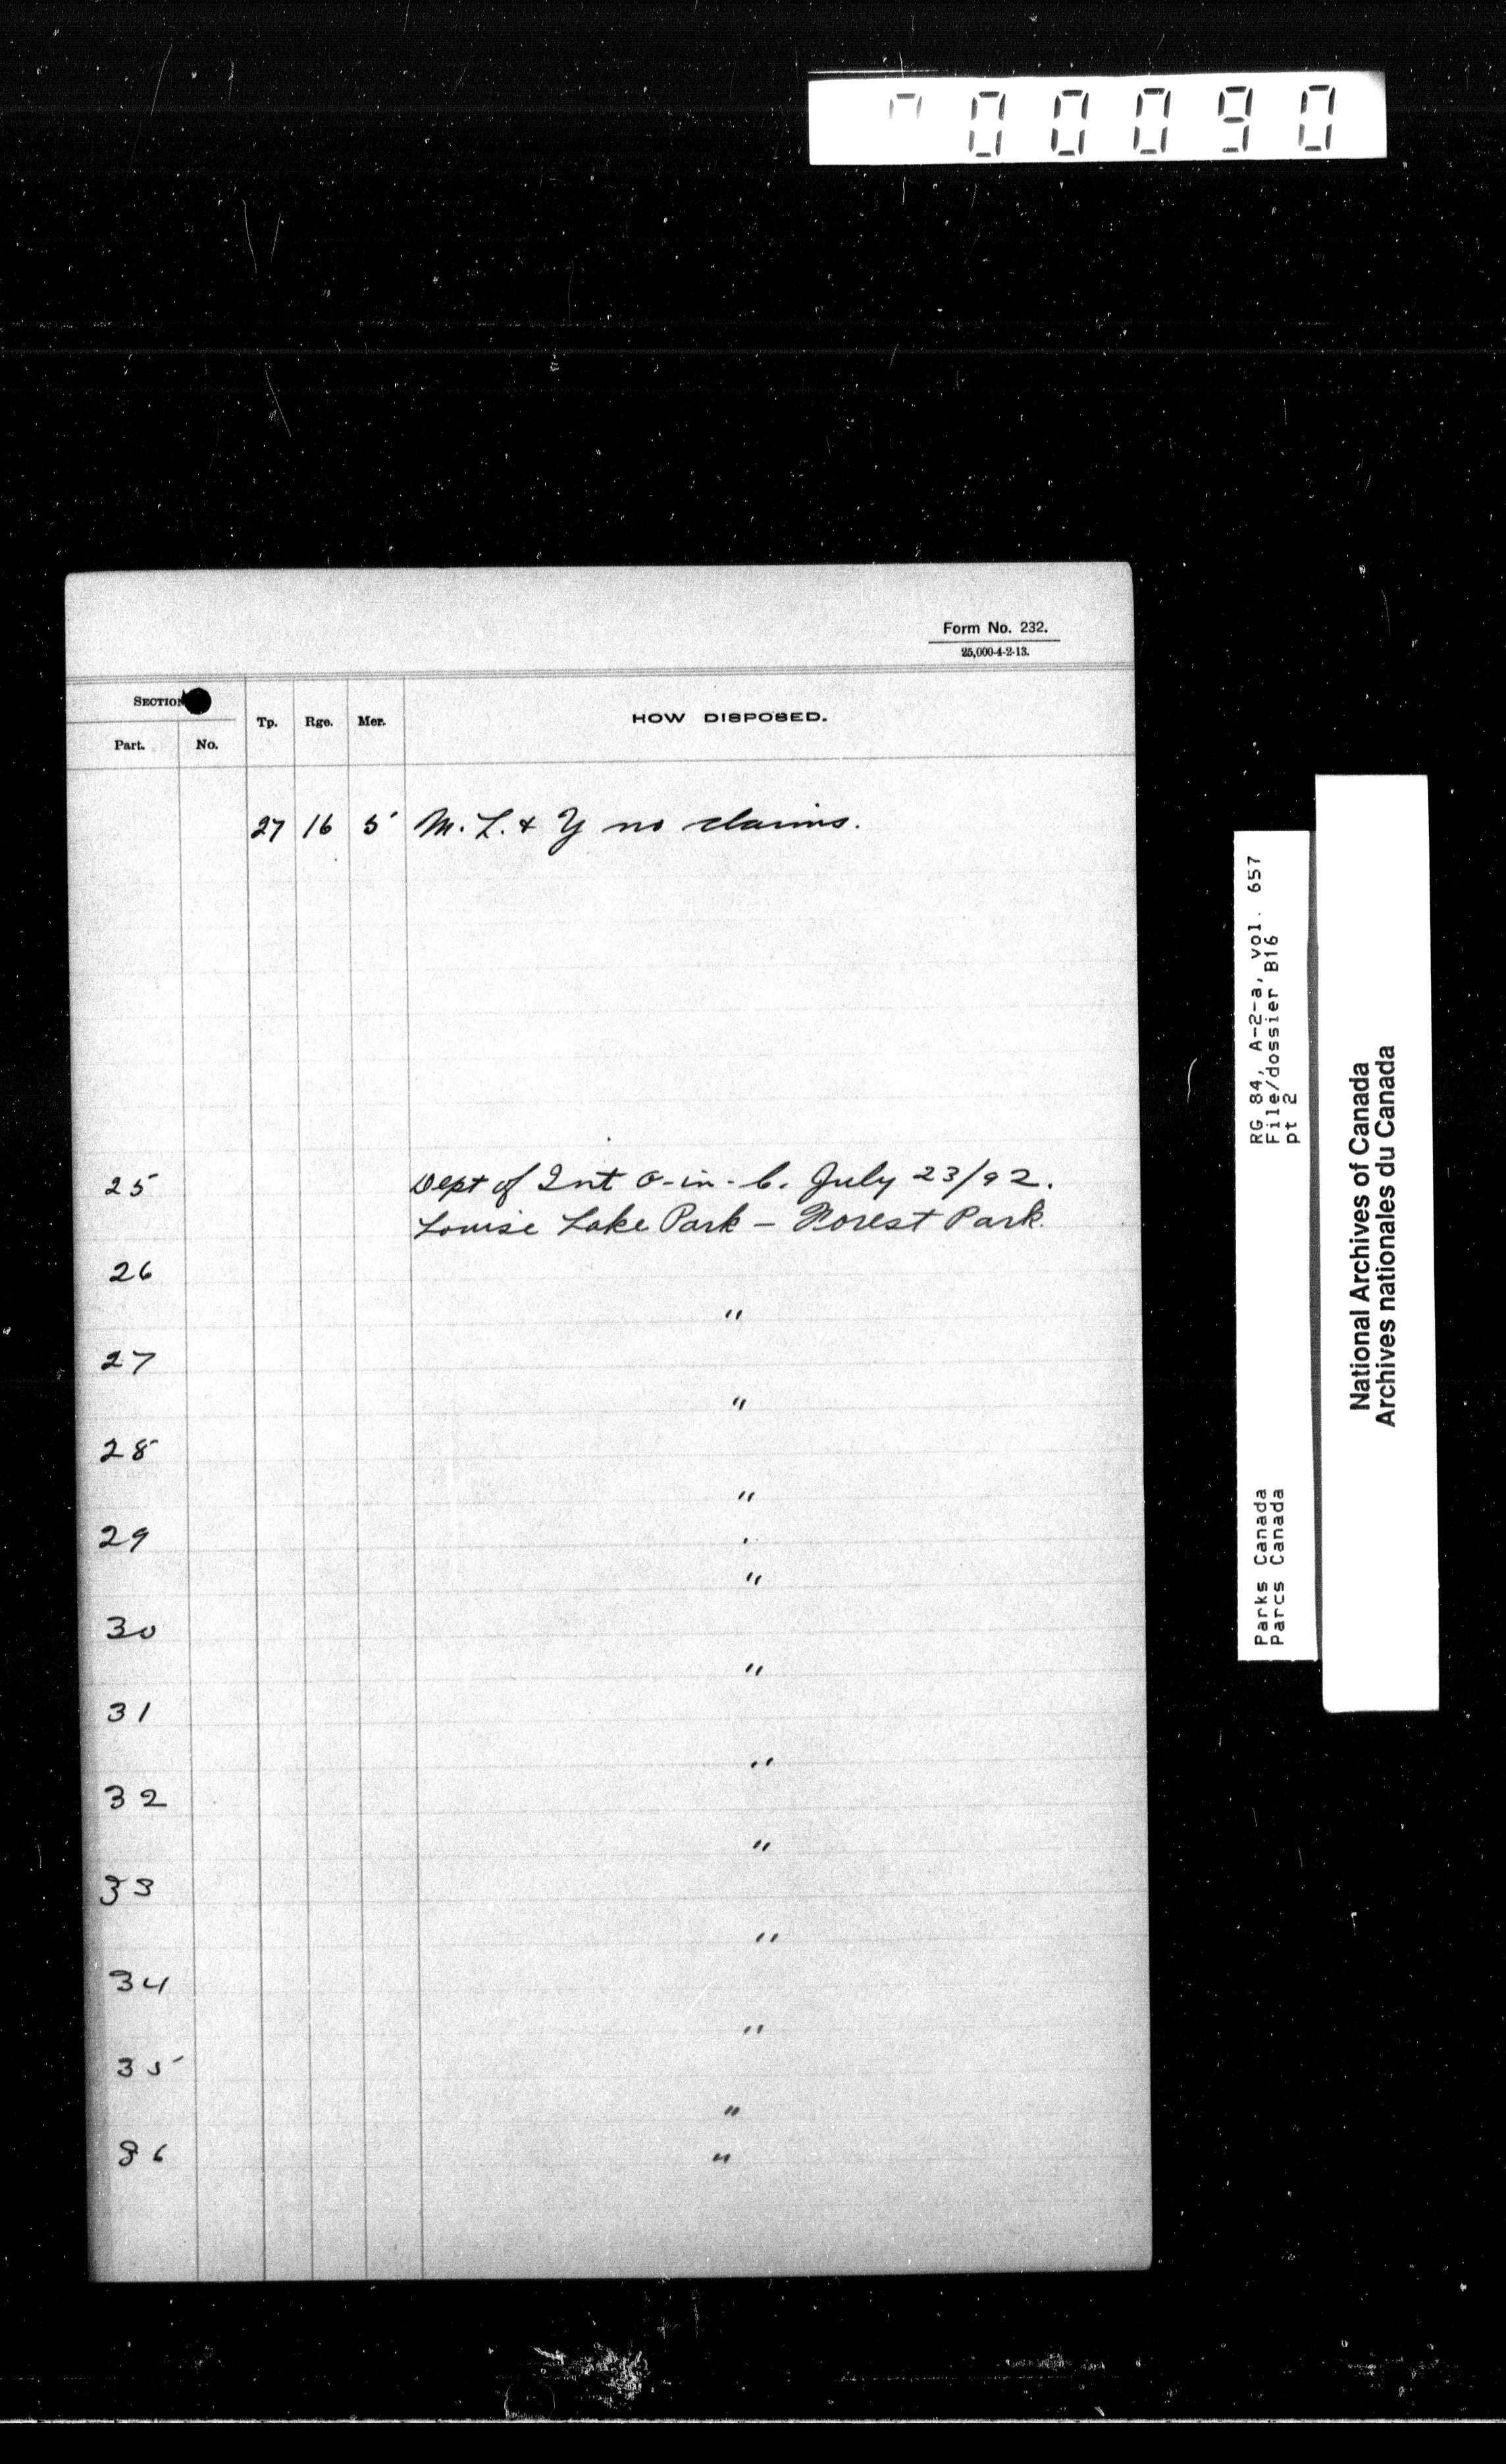 00090
Form No. 232.
25,000-4-2-13.
SECTION
Part. No. Tp. Rge. Mer. HOW DISPOSED.
27 16 5 M. L. & Y no claims.
25 Dept of Int O-in-C. July 23/92.
Louise Lake Park — Forest Park.
26
"
27
"
28
"
29
"
30
"
31
"
32
"
33
"
34
"
35
"
36 "
RG 84, A-2-a, vol. 657
File/dossier B16
pt 2
Parks Canada
Parcs Canada
National Archives of Canada
Archives nationales du Canada